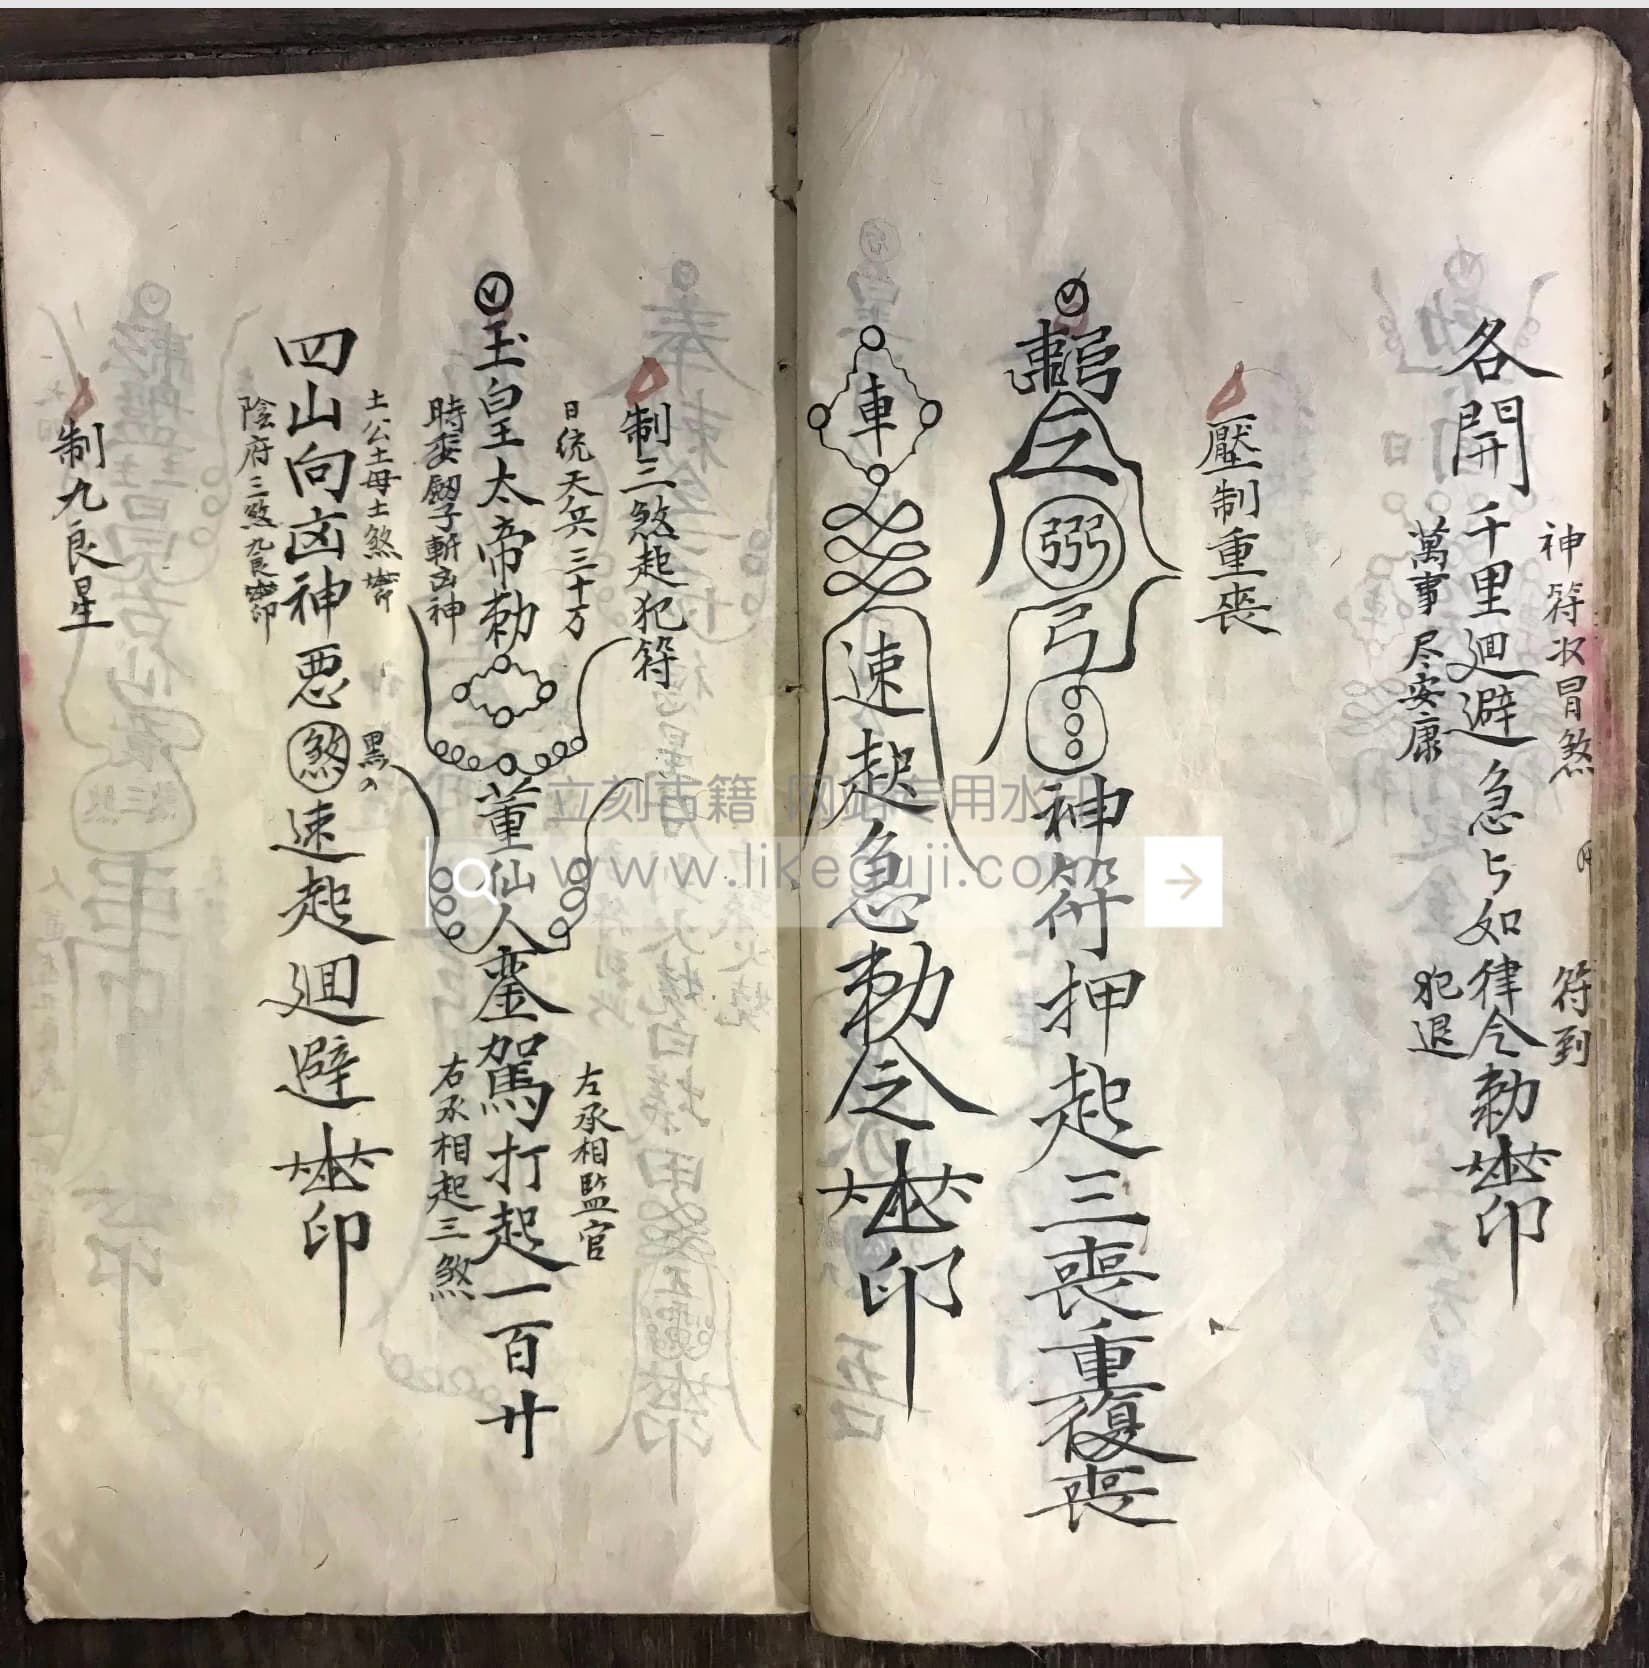 神符收冒煞 符到
各開千里迴避急急如律令勅 印
萬事尽安康 犯退
壓制重喪
弓
神符押起三喪重復喪
車
速起急勅令 印
制三煞起犯符
日統天兵三十万 左承相監官
玉皇王太帝勅
董仙人鑾駕打起一百廿
時委劒子斬凶神 右承相起三煞
土公土母土煞
四山向凶神悪煞速起迴避 印
陰府三煞九良 印
制九良星
立刻古籍 网站专用水印
www.likeguji.com